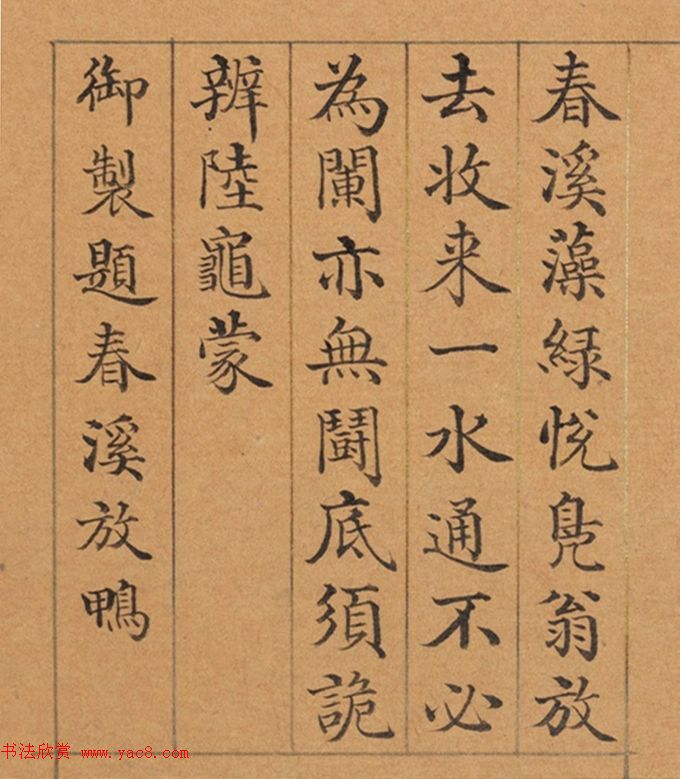 春溪藻緑悅鳧翁放
去收来一水通不必
為闌亦無鬪底須詭
辨陸龜蒙
御製題春溪放鴨
书法欣赏 www.yac8.com